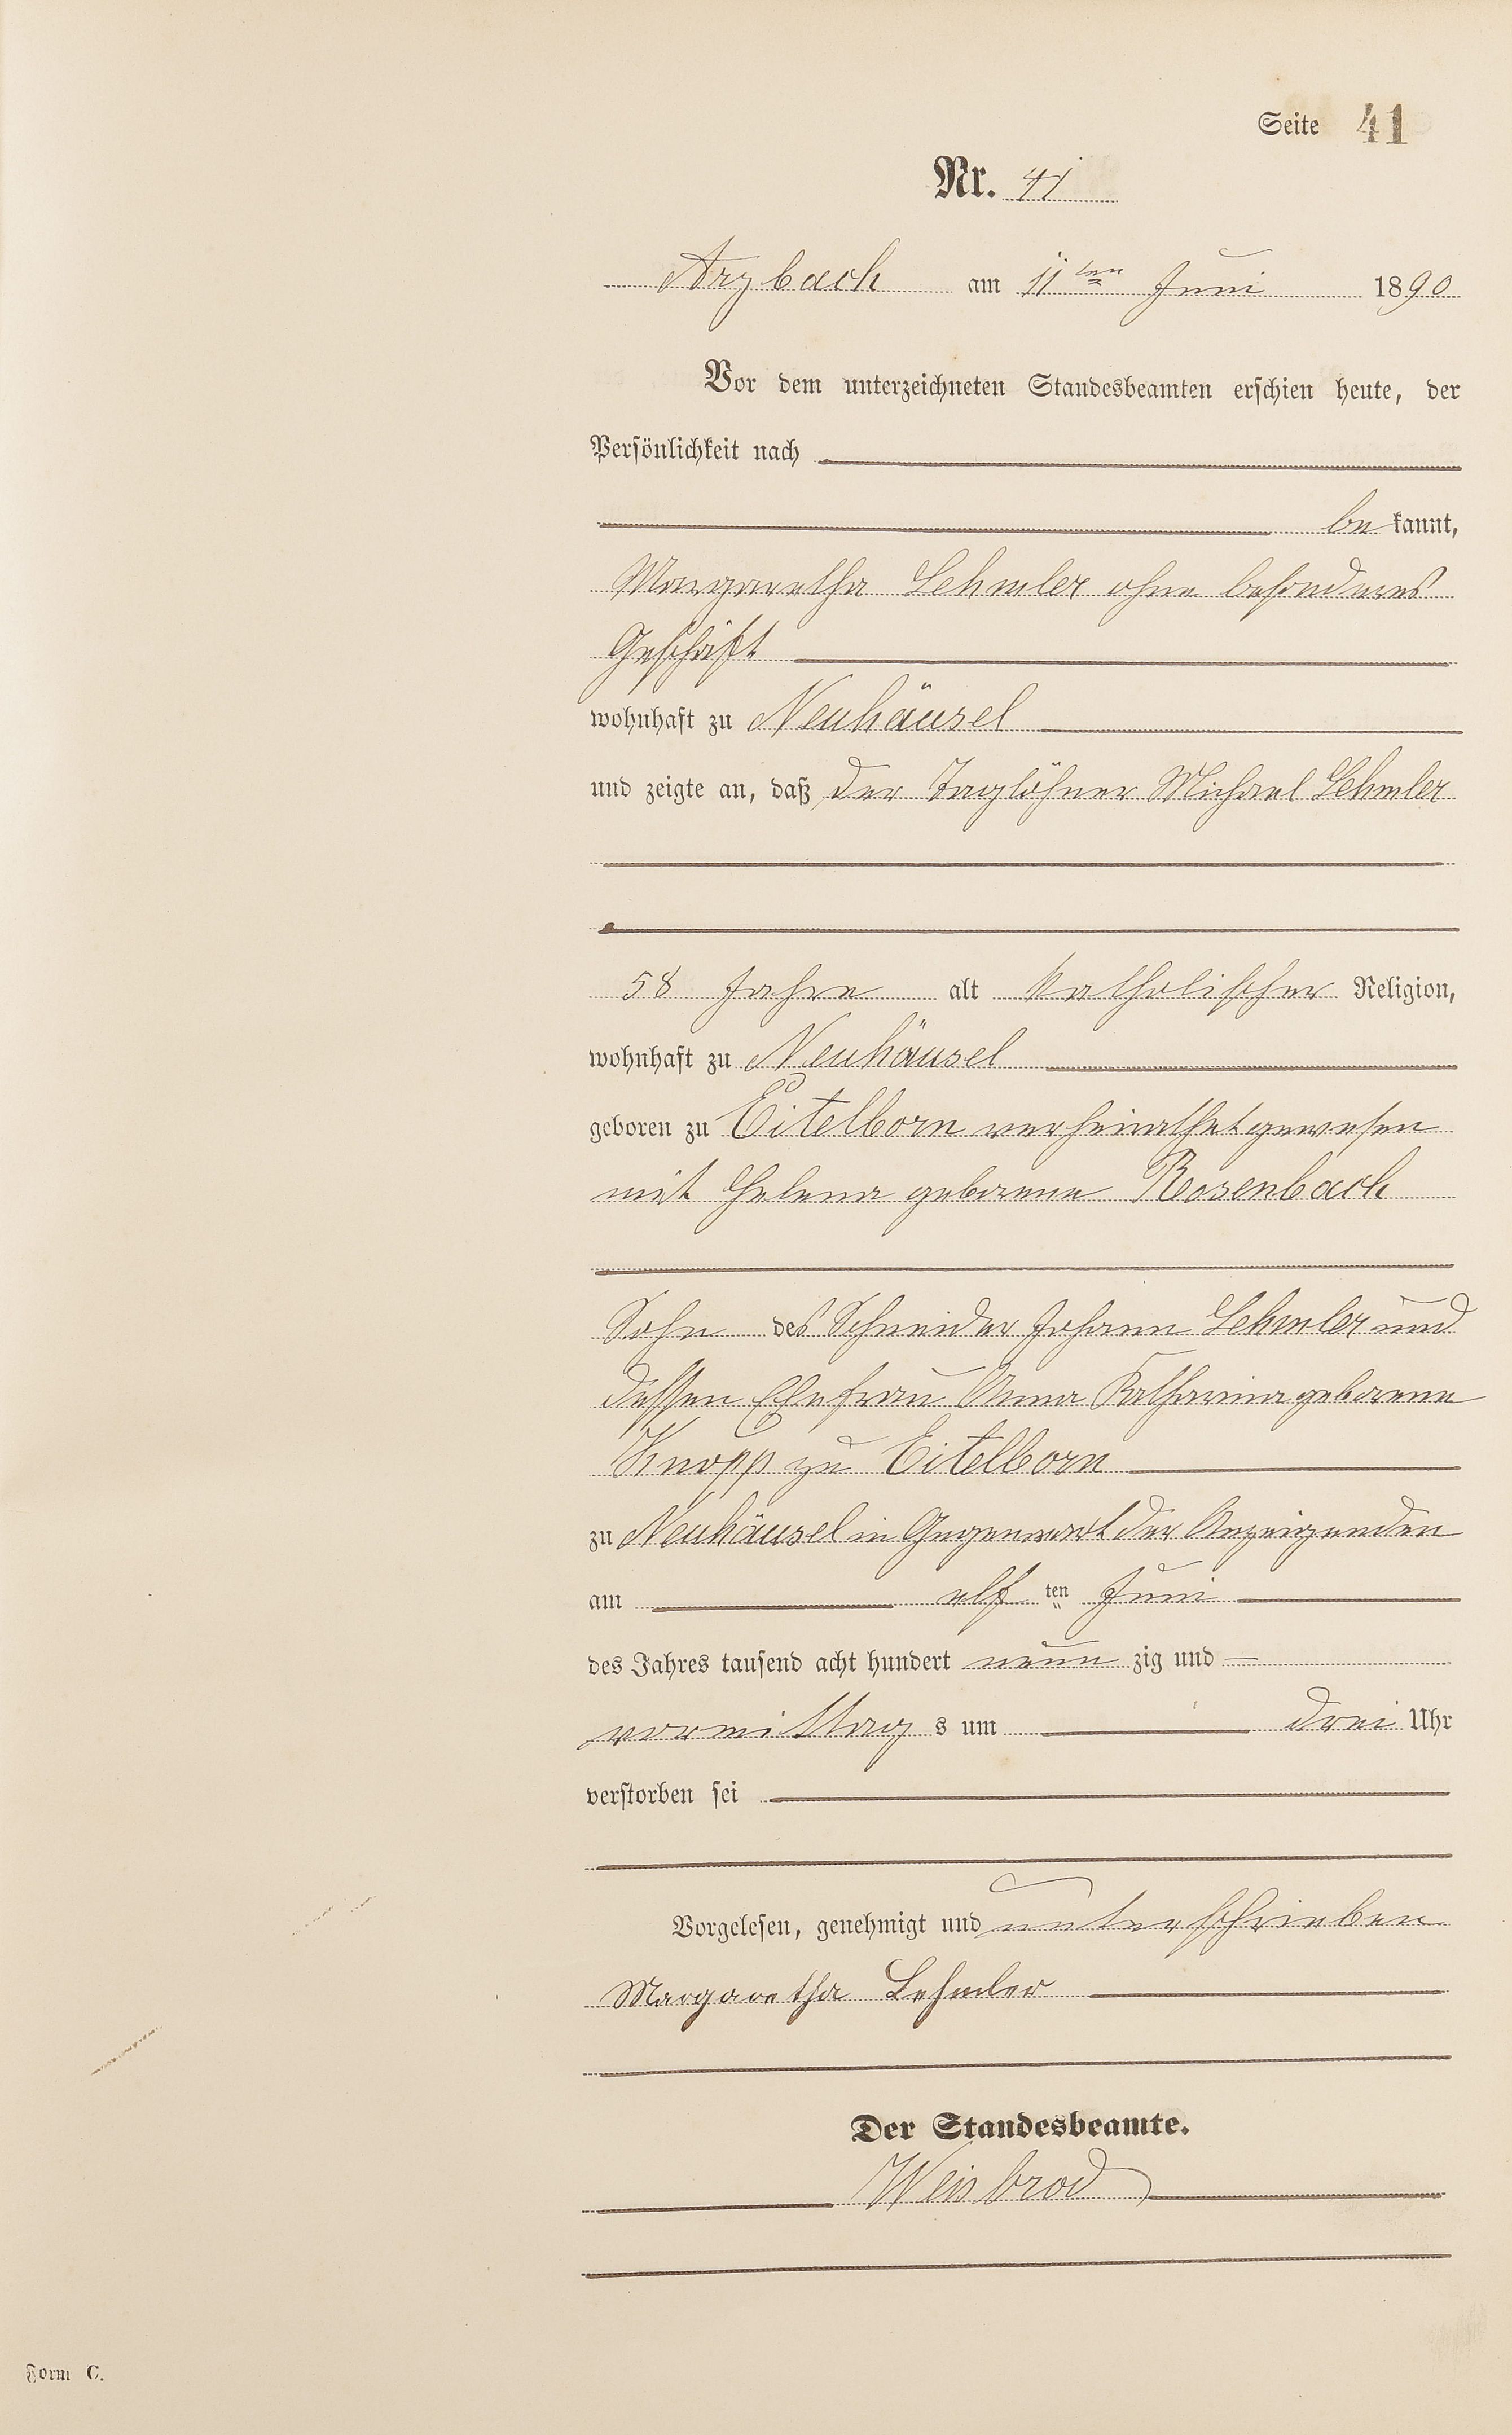 Seite 41
Nr. 41
Arzbach am 11ten Juni 1890
Vor dem unterzeichneten Standesbeamten erschien heute, der
Persönlichkeit nach
bekannt,
Margaretha Lehmler ohne besonderes
Geschäft
wohnhaft zu Neuhäusel
und zeigte an, daß der Taglöhner Michael Lehmler
58 Jahre alt katholischer Religion,
wohnhaft zu Neuhäusel
geboren zu Eitelborn verheirathet gewesen
mit Helena geborene Rosenbach
Sohn des Schneider Johann Lehmler und
dessen Ehefrau Anna Katharina geborene
Knopp zu Eitelborn
zu Neuhäusel in Gegenwart der Anzeigenden
am elf ten Juni
des Jahres tausend acht hundert neun zig und
vormittag s um drei Uhr
verstorben sei
Vorgelesen, genehmigt und unterschrieben
Margaretha Lehmler
Der Standesbeamte.
Weisbrod
Form C.